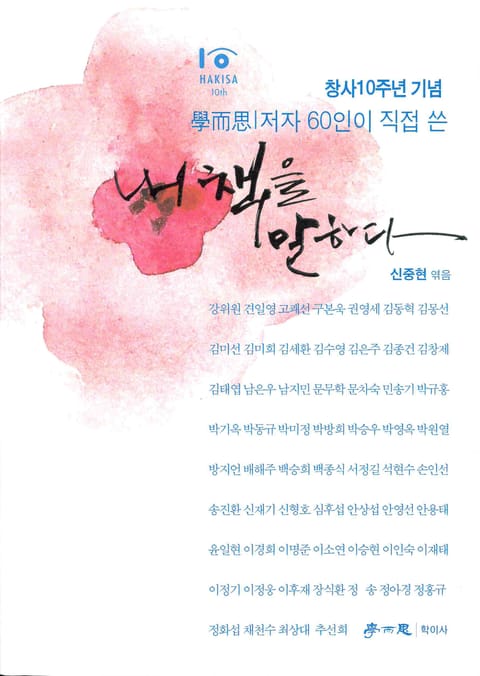 HAKISA
10th
창사10주년 기념
學而思|저자 60인이 직접 쓴
내 책을
말하다
신중현 엮음
강위원 견일영 고쾌선 구본욱 권영세 김동혁 김몽선
김미선 김미희 김세환 김수영 김은주 김종건 김창제
김태엽 남은우 남지민 문무학 문차숙 민송기 박규홍
박기옥 박동규 박미정 박방희 박승우 박영옥 박원열
방지언 배해주 백승희 백종식 서정길 석현수 손인선
송진환 신재기 신형호 심후섭 안상섭 안영선 안용태
윤일현 이경희 이명준 이소연 이승현 이인숙 이재태
이정기 이정웅 이후재 장식환 정 송 정아경 정홍규
정화섭 채천수 최상대 추선희 學而思 | 학이사